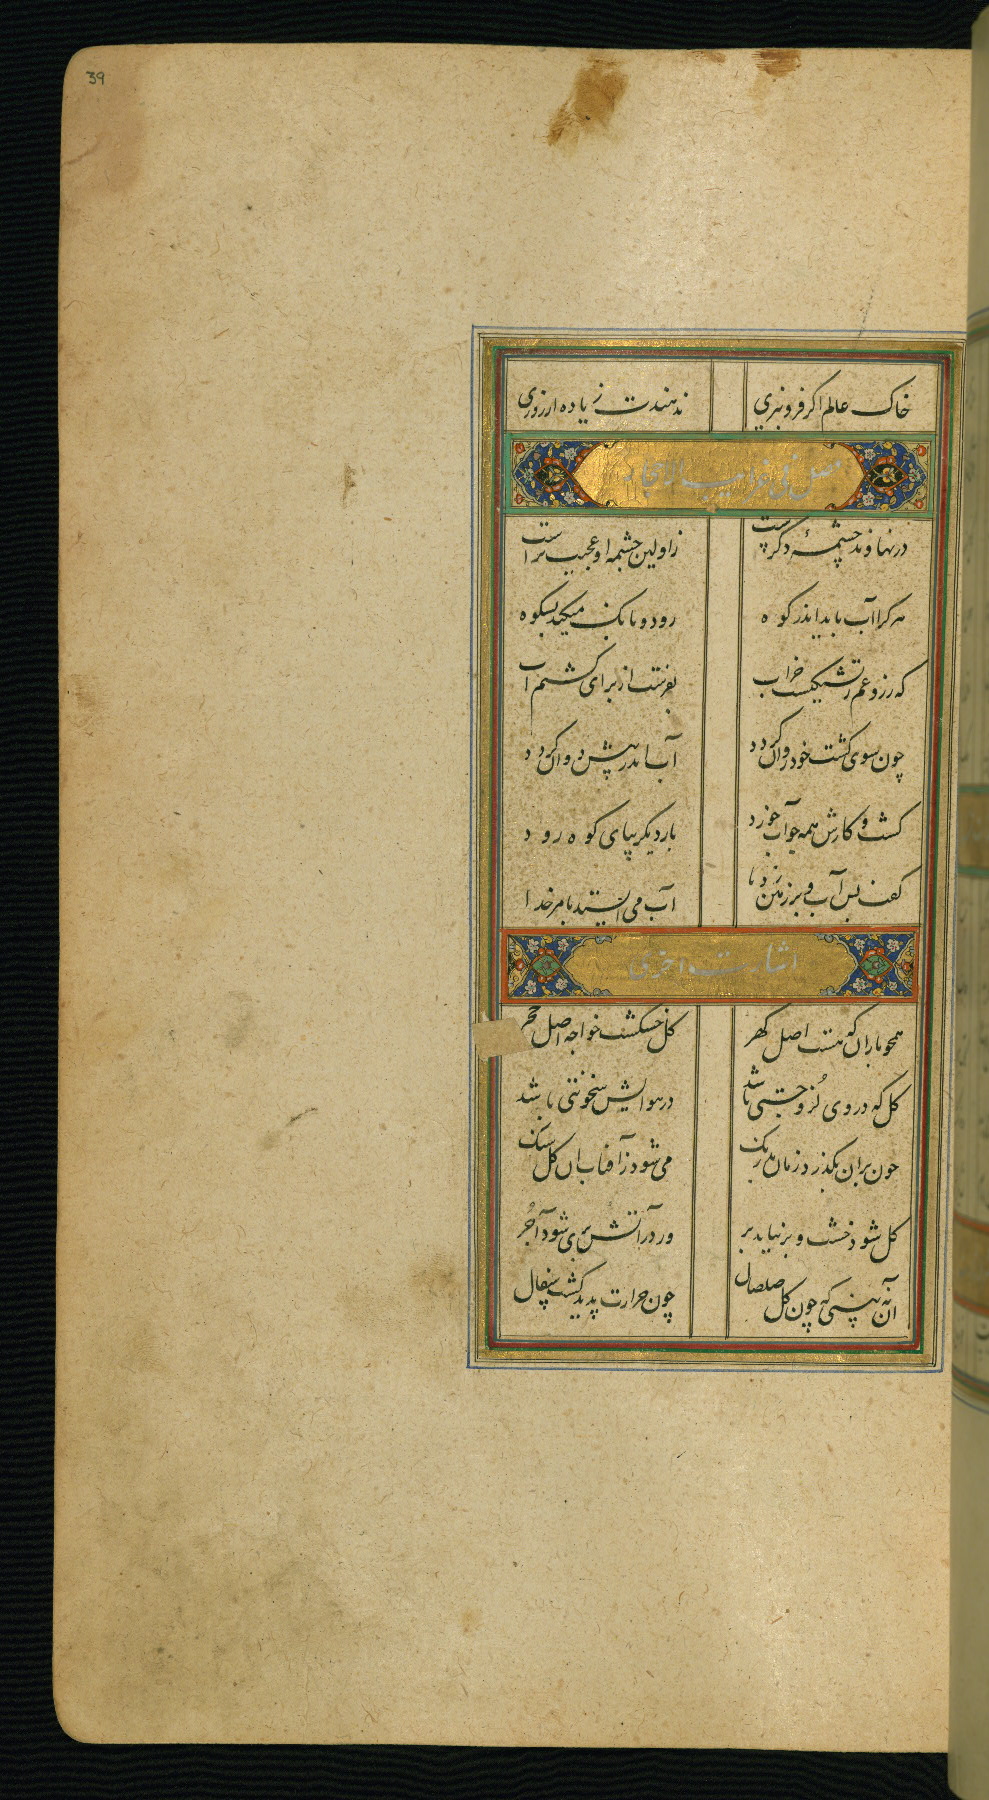 39
خاک عالم اکر فرو نبری ندهندت زیاده از روزی
فصل فی غرایب الایجاد
در نهاوند چشمهٔ دکرست زاولین چشمه او عجیب ترست
هر کرا آب باید اندر کوه رود و بانک میکند بسکوه
که رز و عم تشنکیست خراب بفرست از برای کشتم آب
چون سوی کشت خود روان کردد آب اندر پیش دوان کردد
کشت و کارش همه چو آب خورد بار دیکر بپای کوه رود
کف بس آب و بر زمین زد پا آب می ایستد بامر خدا
اشارت اخری
همچو باران که هست اصل کهر کل خشکست خواجه اصل حجر
کل که در وی لزوجتی باشد در هوایش سخونتی باشد
چون بران بکذرد زمان درنک می شود زآفتاب آن کل سنک
کل شود خشت و بر نیاید بر ور در آتش بری شود آجر
آن نه بینی که چون کل صلصال چون حرارت پدید کشت سفال